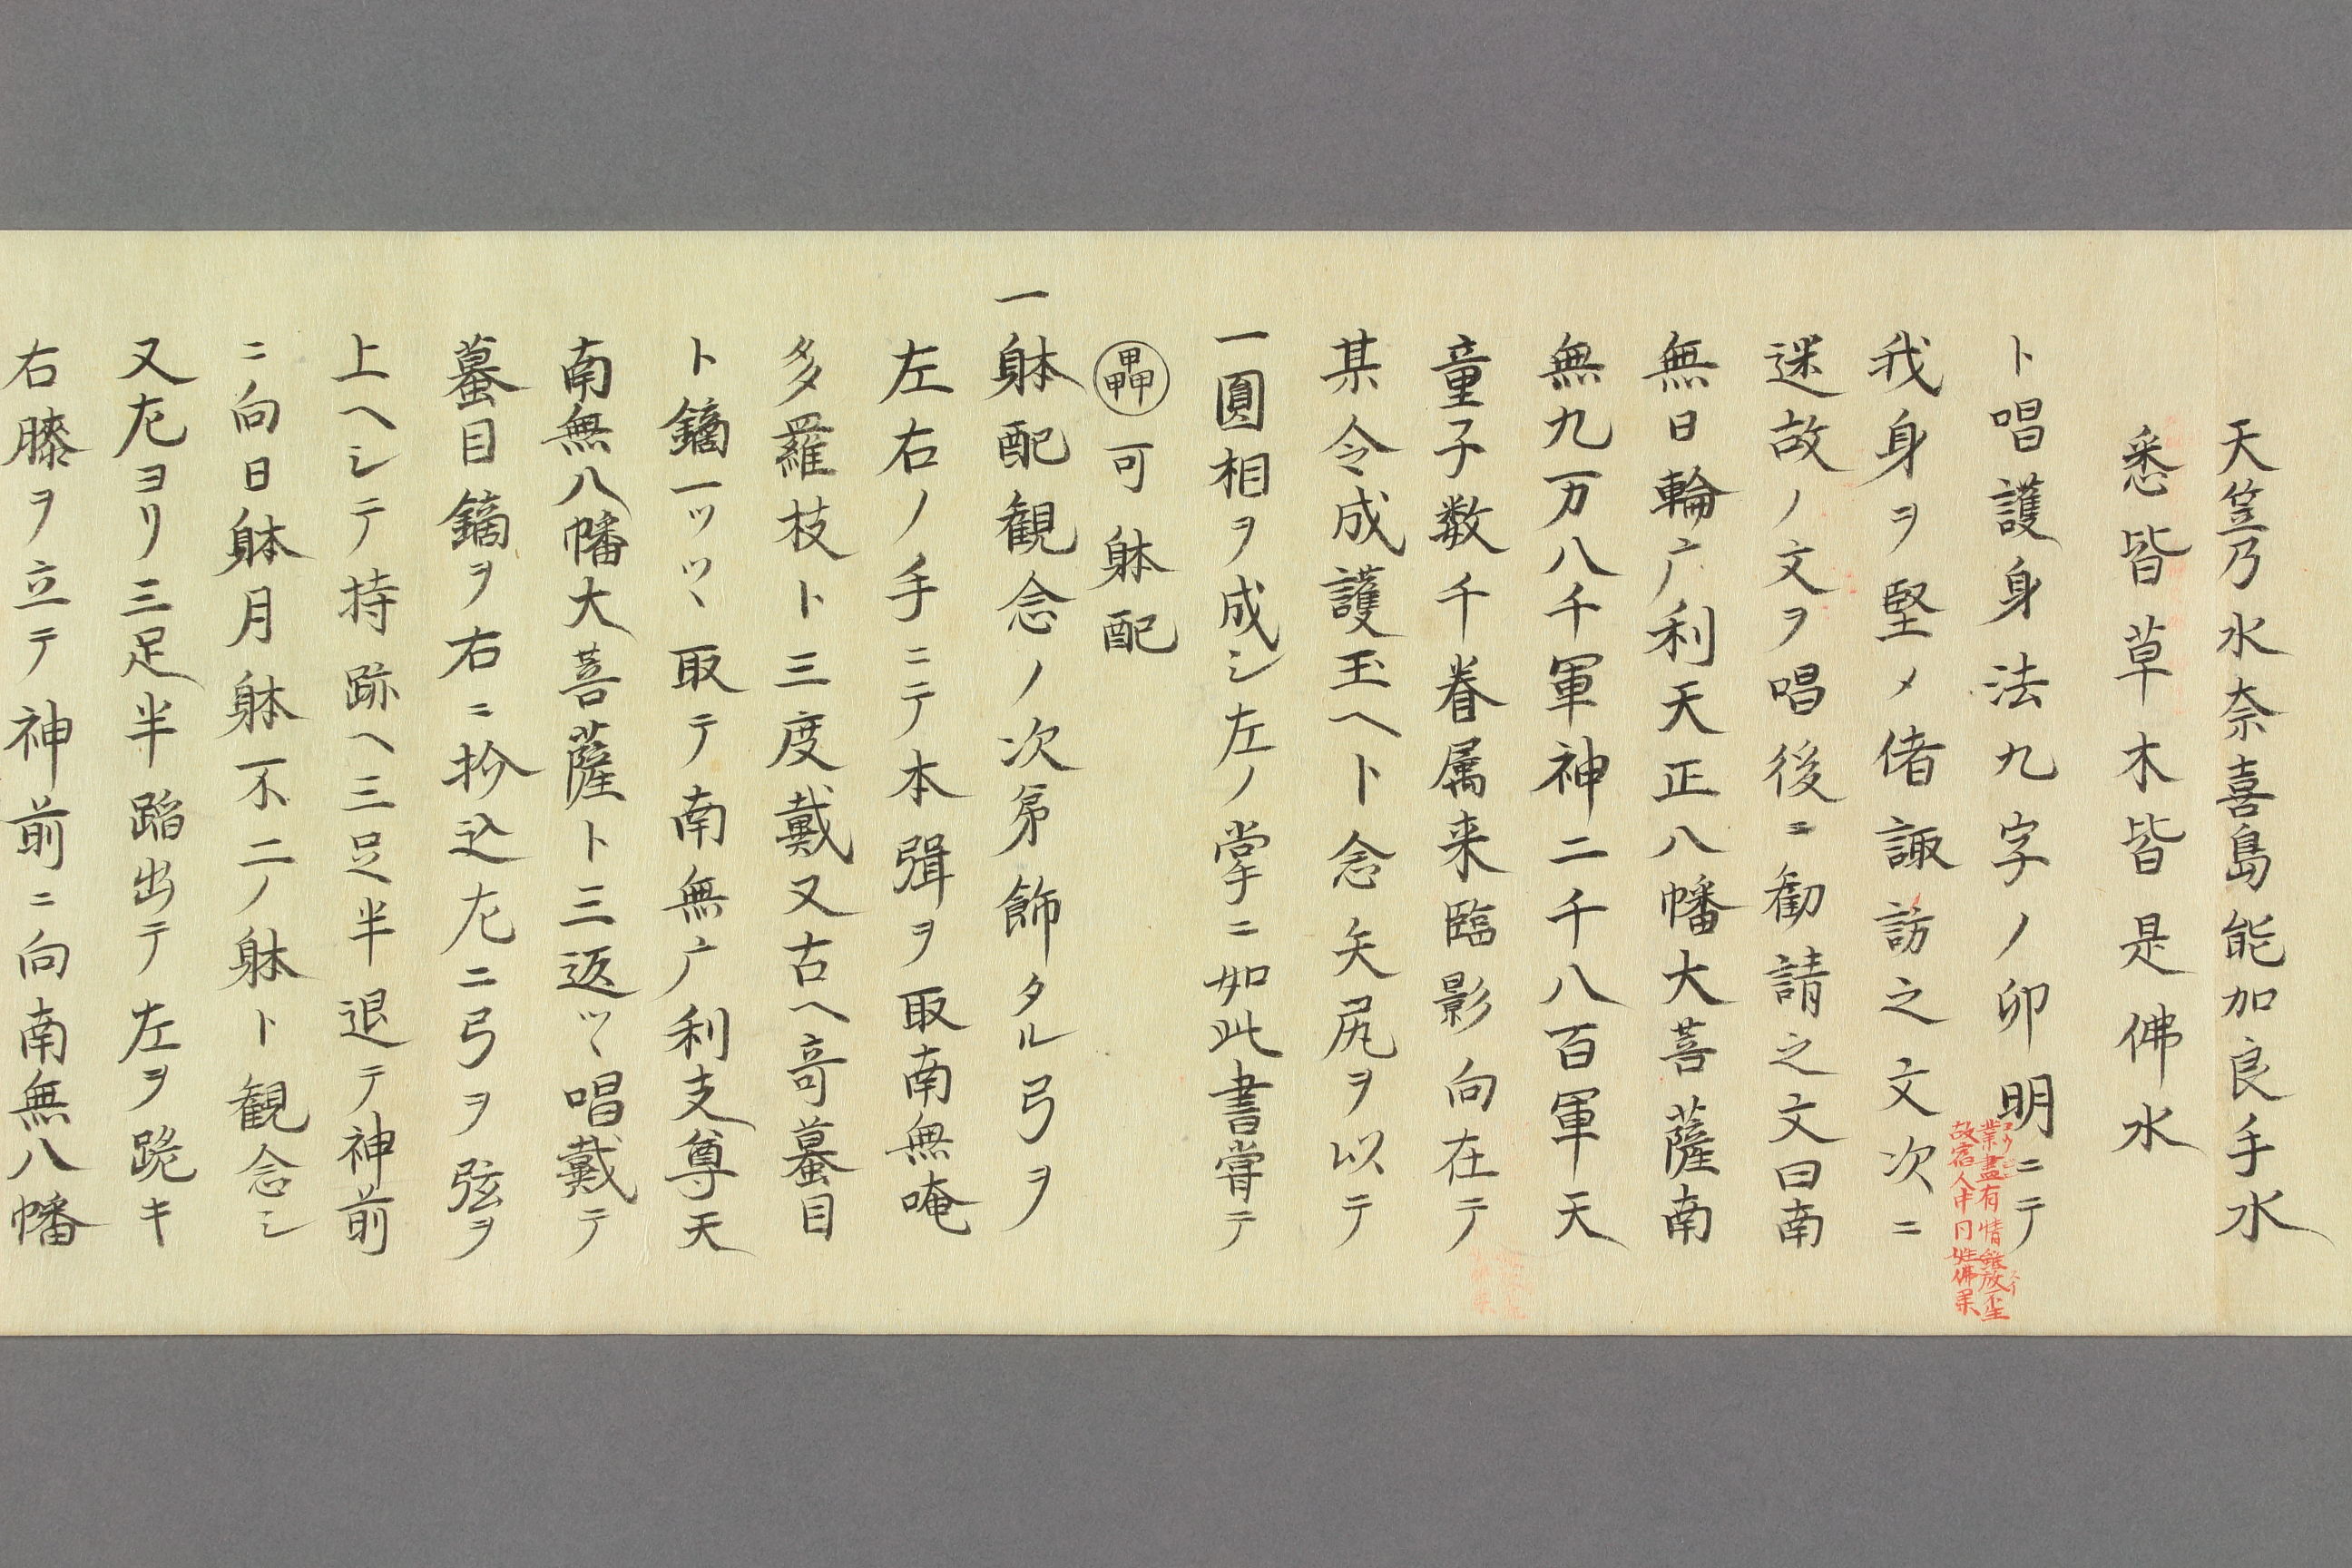 天笠乃水奈喜島能加良手水
悉皆草木皆是佛水
ト唱護身法九字ノ卯明ニテ
業盡有情雖放不生
故宿人中同姓佛果
我身ヲ堅メ偖諏訪之文次ニ
迷故ノ文ヲ唱後ニ勧請之文曰南
無日輪广利天正八幡大菩薩南
無九万八千軍神二千八百軍天
童子数千眷属来臨影向在テ
某令成護玉ヘト念矢尻ヲ以テ
一圓相ヲ成シ左ノ掌ニ如此書甞テ
可躰配
一躰配観念ノ次第飾タル弓ヲ
左右ノ手ニテ本弭ヲ取南無唵
多羅枝ト三度戴又古ヘ竒蟇目
ト鏑一ツツヽ取テ南無广利支尊天
南無八幡大菩薩ト三返ツヽ唱戴テ
蟇目鏑ヲ右ニ扵込左ニ弓ヲ弦ヲ
上ヘシテ持跡ヘ三足半退テ神前
ニ向日躰月躰不二ノ躰ト観念シ
又左ヨリ三足半蹈出テ左ヲ跪キ
右膝ヲ立テ神前ニ向南無八幡